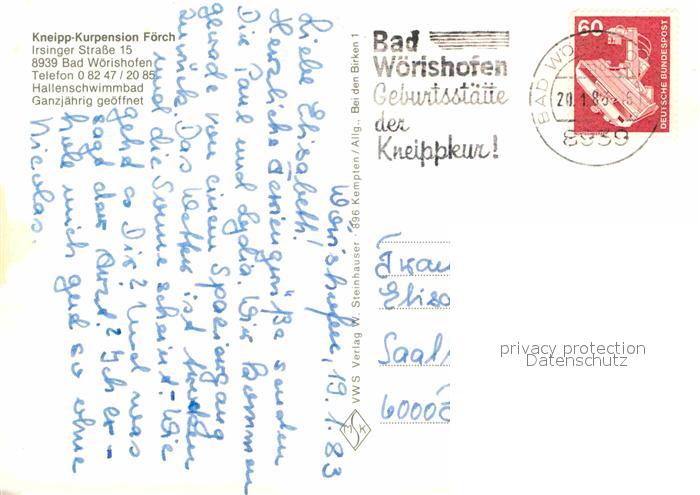 Kneipp-Kurpension Förch
Irsinger Straße 15
8939 Bad Wörishofen
Telefon 0 82 47 / 20 85
Hallenschwimmbad
Ganzjährig geöffnet
Wörishofen, 19.1.83
Liebe Elisabeth!
Herzliche Feriengrüße senden
Dir Paul und Lydia. Wir kommen
gerade von einem Spaziergang
zurück. Das Wetter ist trocken
und die Sonne scheint. Wie
geht es Dir? Und was
sagt der Arzt? Ich er-
hole mich ganz ohne
Nicolas.
VWS Verlag W. Steinhauser · 896 Kempten / Allg., Bei den Birken 1
MSK
Bad
Wörishofen
Geburtsstätte
der
Kneippkur!
BAD WÖ
20.1.83
8939
60
DEUTSCHE BUNDESPOST
Frau
Elisa
Saal
6000
privacy protection
Datenschutz